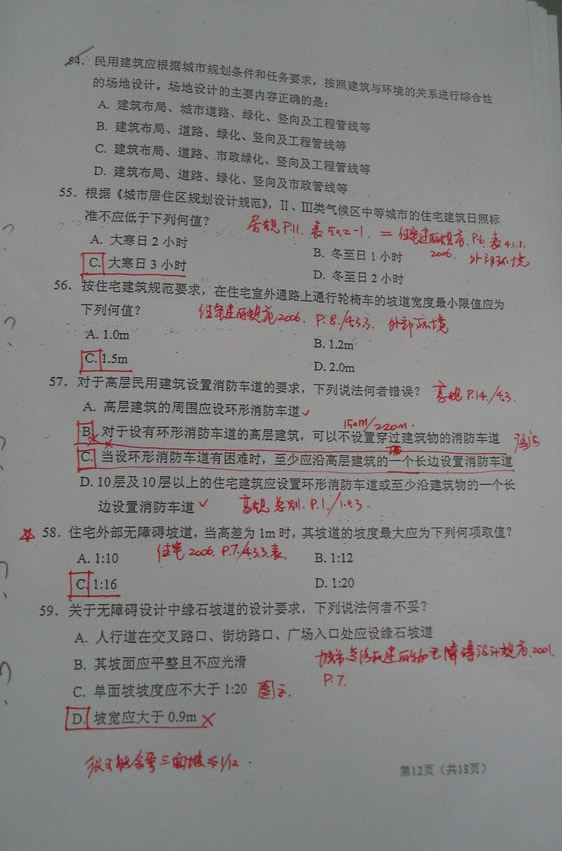 54. 民用建筑应根据城市规划条件和任务要求，按照建筑与环境的关系进行综合性
的场地设计。场地设计的主要内容正确的是：
A. 建筑布局、城市道路、绿化、竖向及工程管线等
B. 建筑布局、道路、绿化、竖向及工程管线等
C. 建筑布局、道路、市政绿化、竖向及工程管线等
D. 建筑布局、道路、绿化、竖向及市政管线等
55. 根据《城市居住区规划设计规范》，Ⅱ、Ⅲ类气候区中等城市的住宅建筑日照标
准不应低于下列何值？ 居规 P.11. 表5.0.2-1. = 住宅建筑规范. P.6. 表4.1.1.
A. 大寒日 2 小时 B. 冬至日 1 小时 2006. 外部环境
C. 大寒日 3 小时 D. 冬至日 2 小时
56. 按住宅建筑规范要求，在住宅室外通路上通行轮椅车的坡道宽度最小限值应为
下列何值？ 住宅建筑规范2006. P.8./4.3.3. 外部环境
A. 1.0m B. 1.2m
C. 1.5m D. 2.0m
57. 对于高层民用建筑设置消防车道的要求，下列说法何者错误？ 高规 P.14./4.3.
A. 高层建筑的周围应设环形消防车道 ✓
150m/220m.
B. 对于设有环形消防车道的高层建筑，可以不设置穿过建筑物的消防车道
C. 当设环形消防车道有困难时，至少应沿高层建筑的一个长边设置消防车道
D. 10 层及 10 层以上的住宅建筑应设置环形消防车道或至少沿建筑物的一个长
边设置消防车道 ✓ 高规 总则. P.1./1.0.3.
58. 住宅外部无障碍坡道，当高差为 1m 时，其坡道的坡度最大应为下列何项取值？
A. 1:10 住宅 2006. P.7./4.3.3.表. B. 1:12
C. 1:16 D. 1:20
59. 关于无障碍设计中缘石坡道的设计要求，下列说法何者不妥？
A. 人行道在交叉路口、街坊路口、广场入口处应设缘石坡道
B. 其坡面应平整且不应光滑 城市道路和建筑物无障碍设计规范.2001.
C. 单面坡坡度应不大于 1:20 P.7.
D. 坡宽应大于 0.9m ×
三面坡≤1/12.
第12页（共18页）